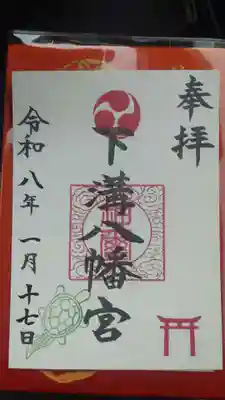 奉拝
下溝八幡宮
令和八年 一月十七日